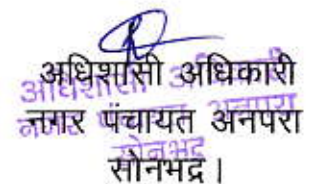 अधिशासी अधिकारी
नगर पंचायत अनपरा
सोनभद्र।
अधिशासी अधिकारी
नगर पंचायत अनपरा
सोनभद्र